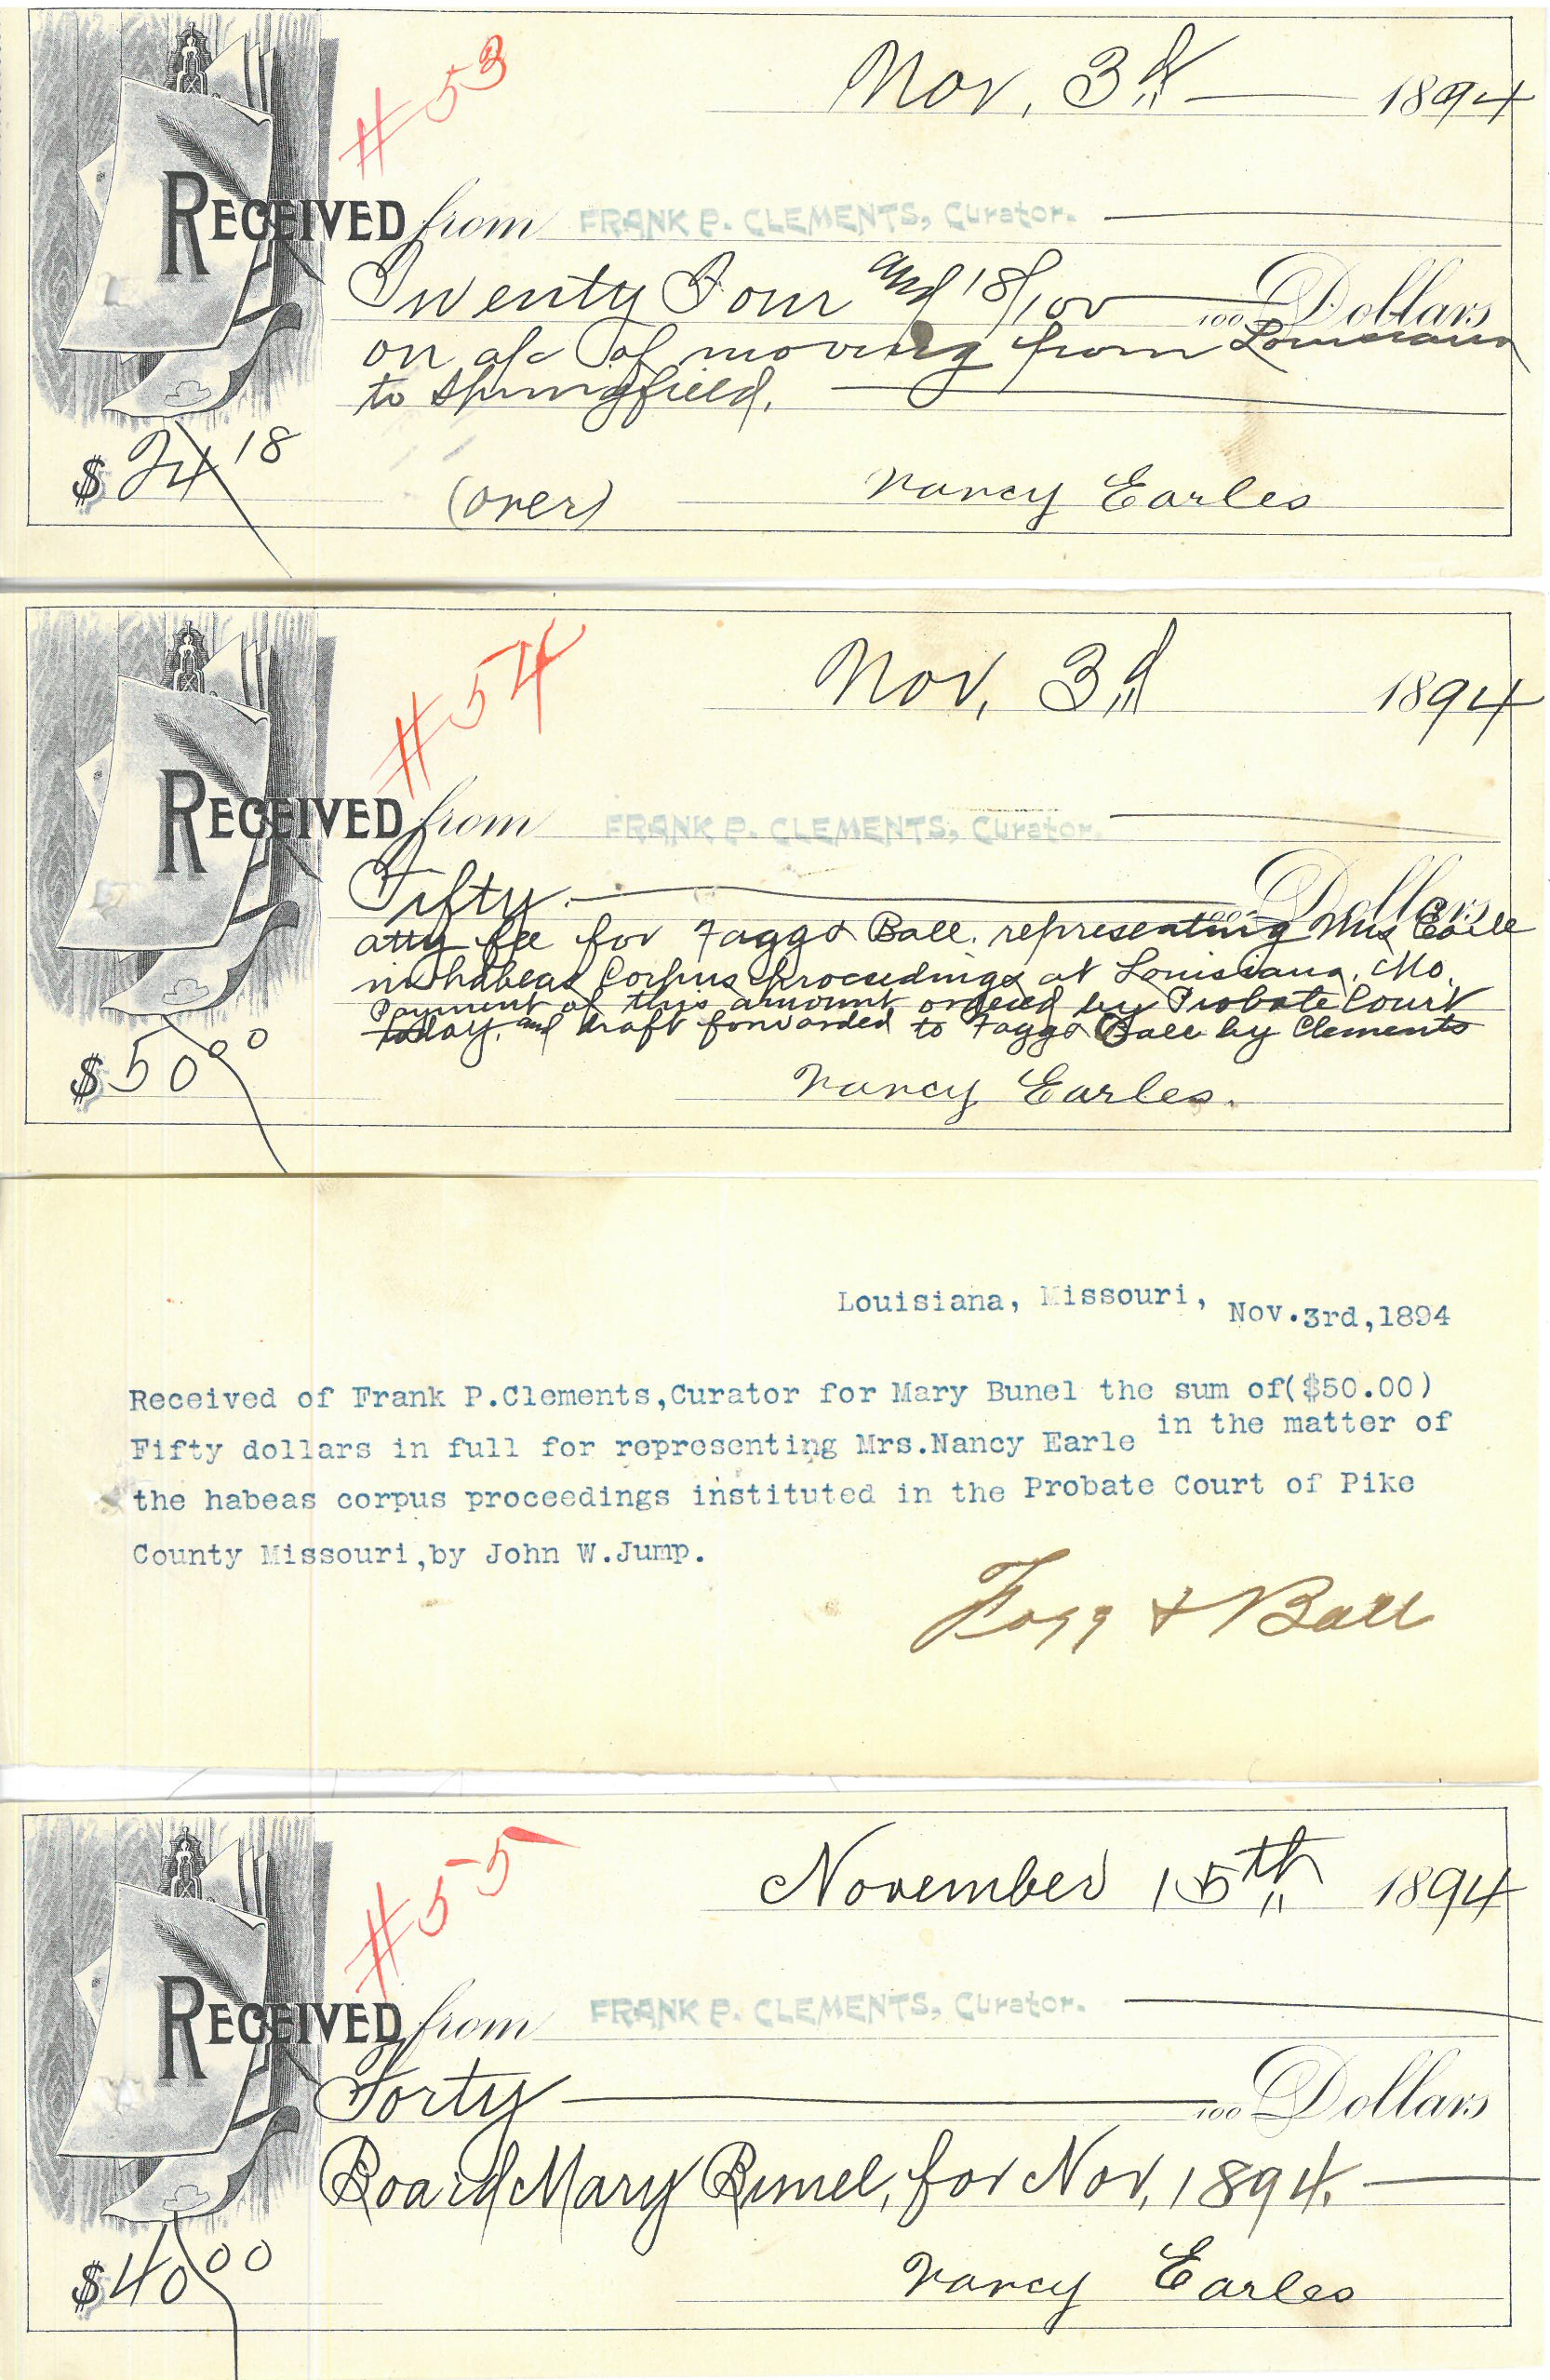 #53
Nov, 3d 1894
RECEIVED from FRANK P. CLEMENTS, Curator.
Twenty Four and 18/100 100 Dollars
on a/c of moving from Louisiana
to Springfield.
$24 18
(over)
Nancy Earles
#54
Nov, 3d 1894
RECEIVED from FRANK P. CLEMENTS, Curator.
Fifty 100 Dollars
atty fee for Fagg & Ball. representing Mrs Earle
in habeas Corpus proceedings at Louisiana, Mo.
Payment of this amount ordered by Probate Court
today, and draft forwarded to Fagg & Ball by Clements
$50 00
Nancy Earles.
Louisiana, Missouri, Nov.3rd,1894
Received of Frank P.Clements,Curator for Mary Bunel the sum of($50.00)
Fifty dollars in full for representing Mrs.Nancy Earle in the matter of
the habeas corpus proceedings instituted in the Probate Court of Pike
County Missouri,by John W.Jump.
Fagg & Ball
#55
November 15th 1894
RECEIVED from FRANK P. CLEMENTS, Curator.
Forty 100 Dollars
Board Mary Bunel, for Nov, 1894.
$40 00
Nancy Earles